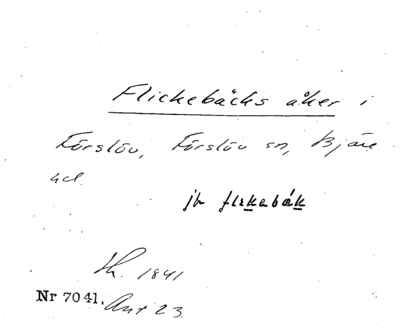 Flickebäcks åker i
Förslöv, Förslöv sn, Bjäre
hd.
jb flekabäk
1841
Nr 7041. Ant 23